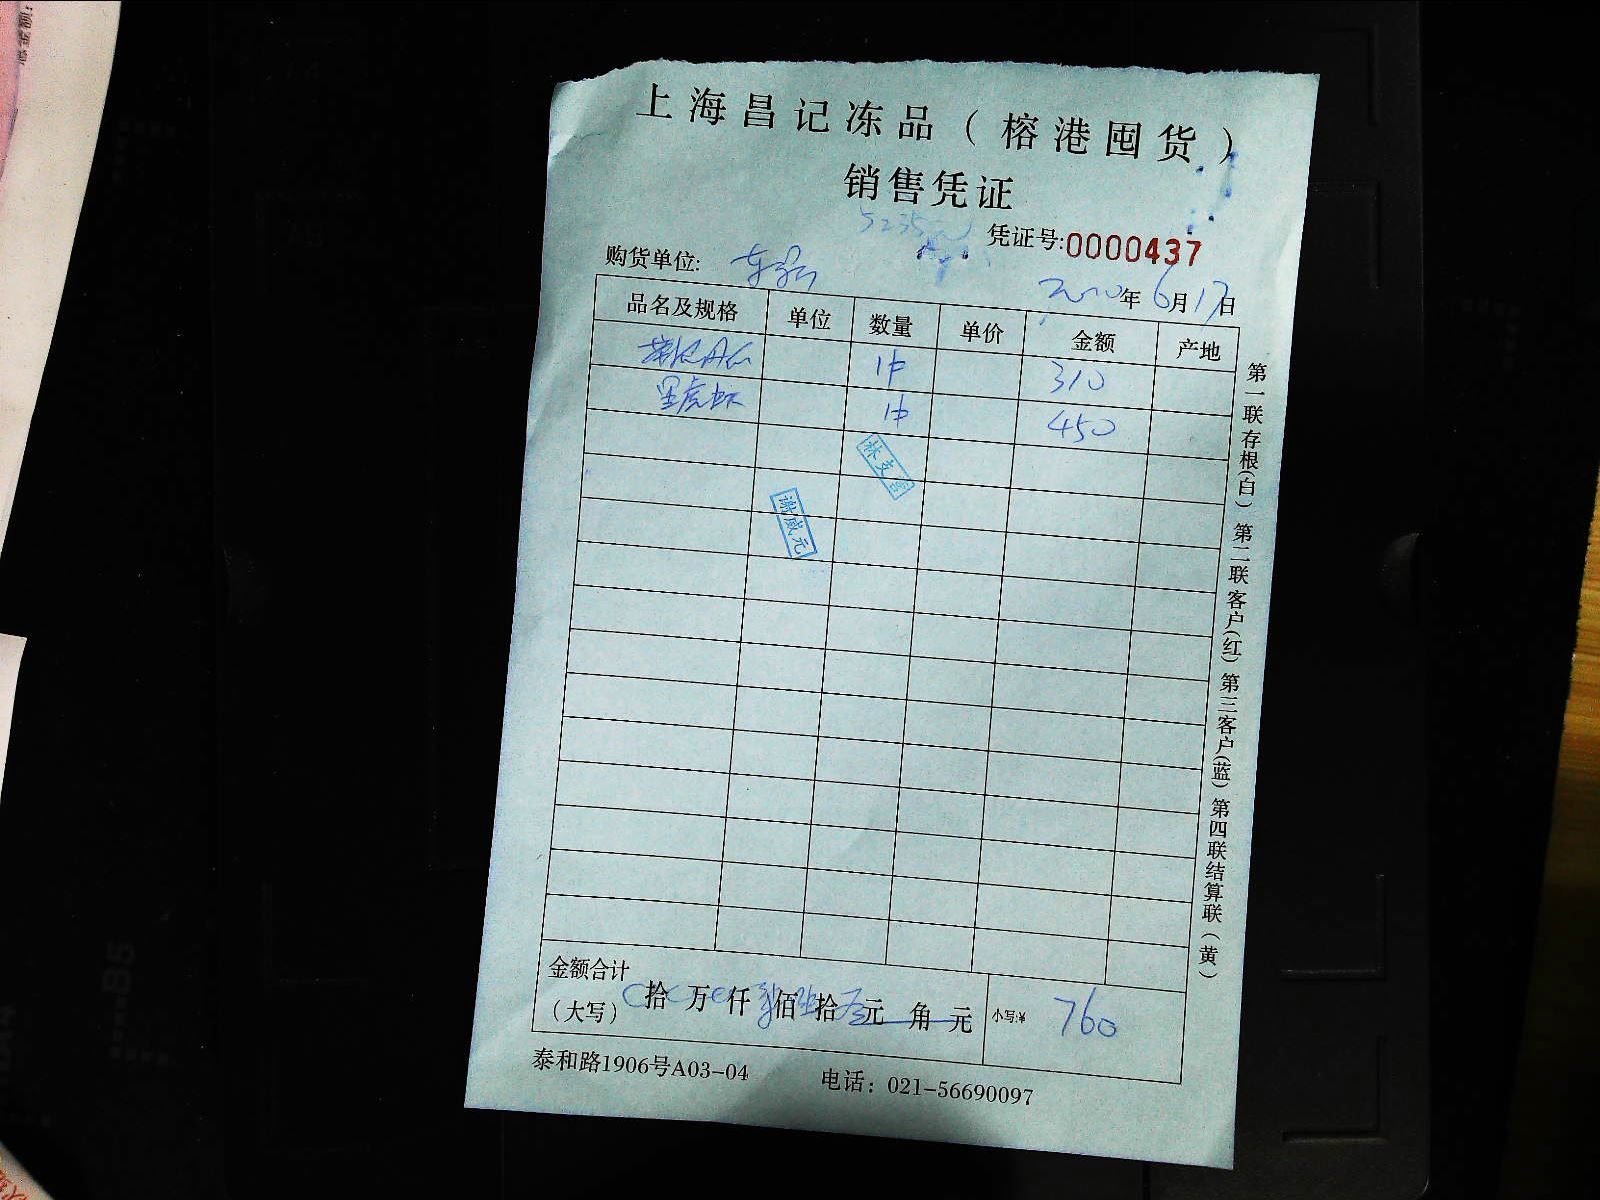 上海昌记冻品（榕港囤货）
销售凭证
凭证号:0000437
购货单位:
2020年6月17日
品名及规格 单位 数量 单价 金额 产地
1件 310
黑虎虾 1件 450
林支富
谢威元
金额合计
（大写） 拾 万 仟 柒佰陆拾 元 角 元 小写:¥ 760
泰和路1906号A03-04 电话：021-56690097
第一联存根(白) 第二联客户(红) 第三客户(蓝) 第四联结算联(黄)
B5